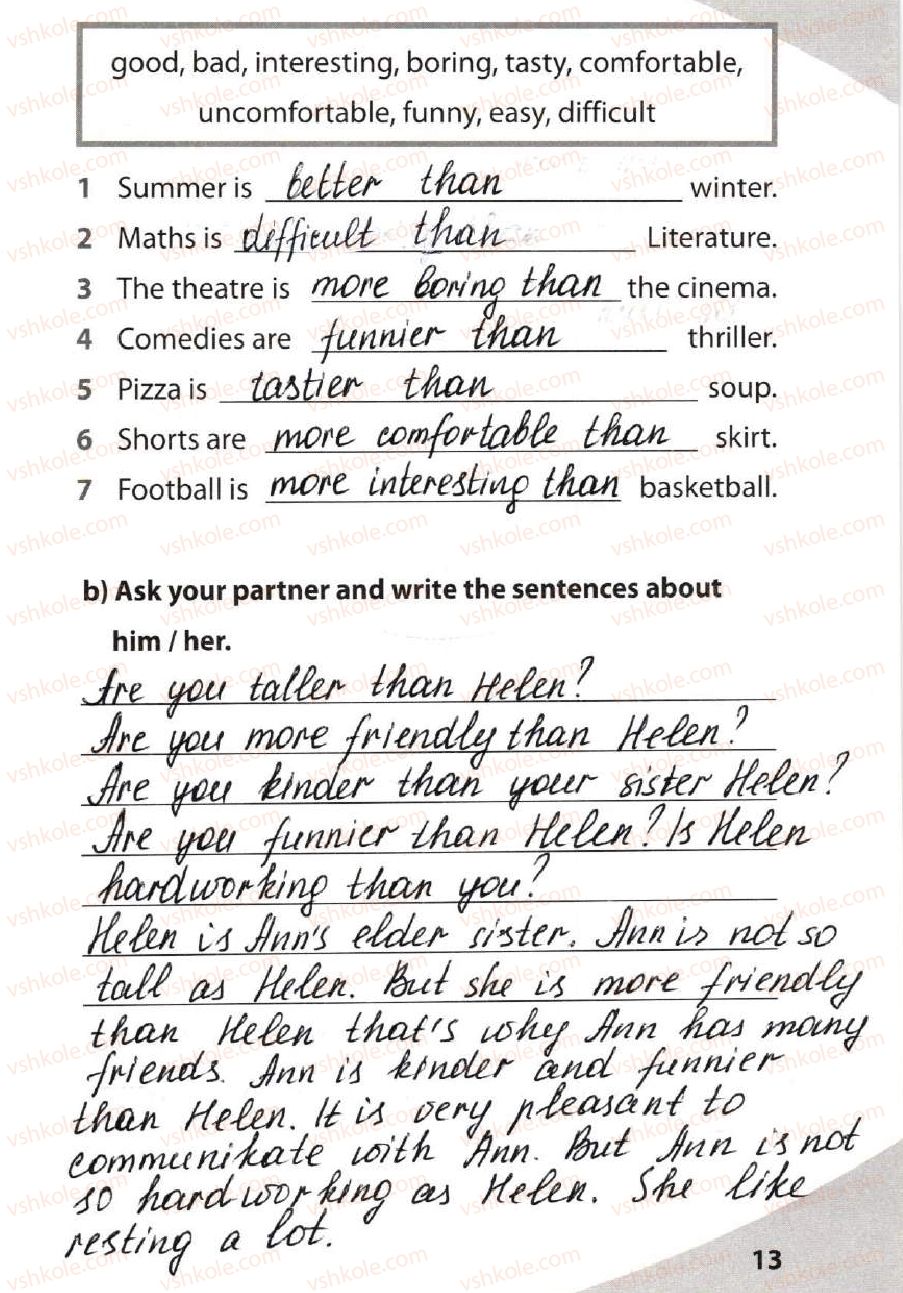 good, bad, interesting, boring, tasty, comfortable,
uncomfortable, funny, easy, difficult
1 Summer is better than winter.
2 Maths is difficult than Literature.
3 The theatre is more boring than the cinema.
4 Comedies are funnier than thriller.
5 Pizza is tastier than soup.
6 Shorts are more comfortable than skirt.
7 Football is more interesting than basketball.
b) Ask your partner and write the sentences about
him / her.
Are you taller than Helen?
Are you more friendly than Helen?
Are you kinder than your sister Helen?
Are you funnier than Helen? Is Helen
hardworking than you?
Helen is Ann's elder sister. Ann is not so
tall as Helen. But she is more friendly
than Helen that's why Ann has many
friends. Ann is kinder and funnier
than Helen. It is very pleasant to
communikate with Ann. But Ann is not
so hardworking as Helen. She like
resting a lot.
13
vshkole.com